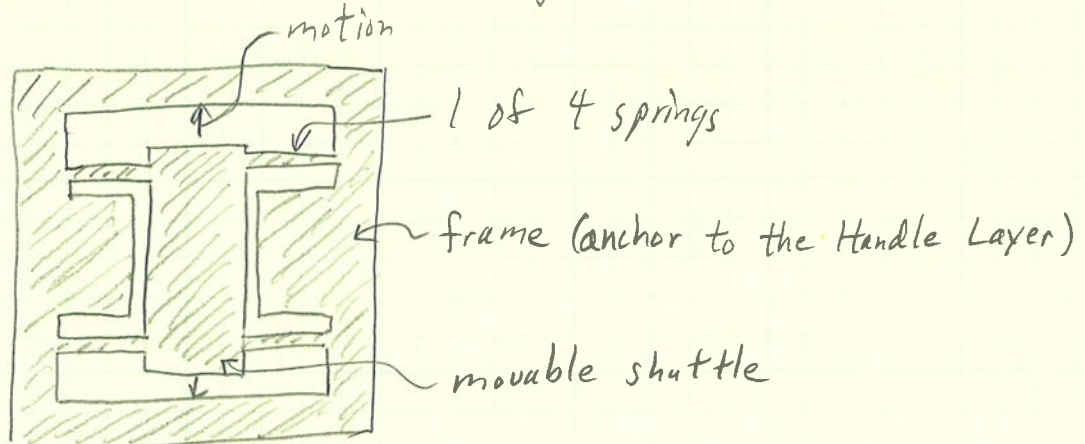 motion
1 of 4 springs
frame (anchor to the Handle Layer)
movable shuttle